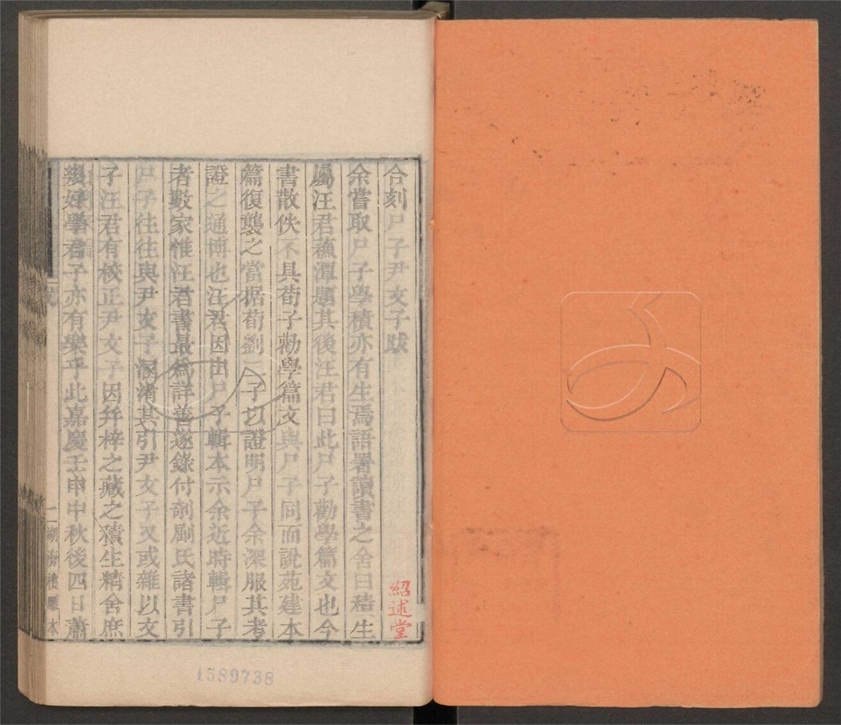 合刻尸子尹文子跋
余嘗取尸子學積亦有生焉語署讀書之舍曰積生
屬汪君蘓潭題其後汪君曰此尸子勸學篇文也今
書散佚不具荀子勸學篇文與尸子同而說苑建本
篇復襲之當据荀劉 子以證明尸子余深服其考
證之通博也汪君因出尸子輯本示余近時輯尸子
者數家惟汪君書最為詳善遂錄付剞劂氏諸書引
尸子往往與尹文子溷淆其引尹文子又或雜以文
子汪君有校正尹文子因幷梓之藏之積生精舍庶
好學君子亦有樂乎此嘉慶壬申中秋後四日蕭
紹述堂
1589738